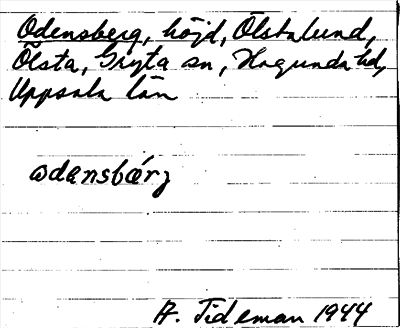 Odensberg, höjd, Ölstalund,
Ölsta, Gryta sn, Hagunda hd,
Uppsala län
ωdansbærʒ
A. Tideman 1944